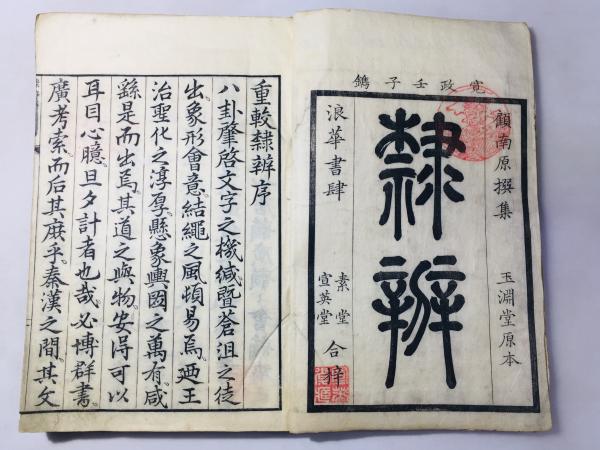 寛政壬子鐫
顧南原撰集
隸辨
玉淵堂原本
浪華書肆
素堂
宣英堂
合梓
重較隸辨序
八卦肇啓文字之機緘暨蒼沮之徒
出象形會意結繩之風頓易焉廼王
治聖化之淳厚懸象輿圖之萬有咸
繇是而出焉其道之與物安得可以
耳目心臆旦夕計者也哉必博群書
廣考索而后其庶乎秦漢之間其文